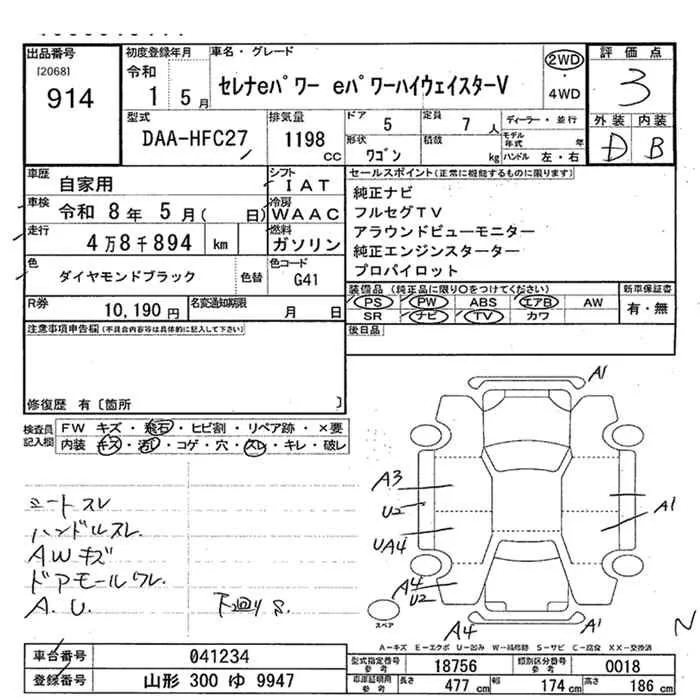 出品番号
[2068]
914
初度登録年月
令和
1 5月
車名・グレード
セレナeパワー eパワーハイウェイスターV
2WD
・
4WD
評価点
3
外装 内装
D B
型式
DAA-HFC27
排気量
1198
cc
ドア 5
定員 7人
形状 ワゴン
積載 kg
ディーラー・並行
モデル年式 年
ハンドル 左・右
車歴 自家用
シフト IAT
車検 令和 8年 5月( 日)
冷房 WAAC
走行 4万8千894 km
燃料 ガソリン
色 ダイヤモンドブラック
色替
色コード G41
R券 10,190円
名変通知期限 月 日
セールスポイント(正常に機能するものに限ります)
純正ナビ
フルセグTV
アラウンドビューモニター
純正エンジンスターター
プロパイロット
装備品 (純正品に限り○をつけてください)
PS PW ABS エアB AW
SR ナビ TV カワ
新車保証書
有・無
後日品
注意事項申告欄(不具合内容等は具体的に記入して下さい)
修復歴 有〔箇所 〕
検査員記入欄
FW キズ・飛石・ヒビ割・リペア跡・×要
内装 キズ・汚レ・コゲ・穴・スレ・キレ・破レ
シートスレ
ハンドルスレ
AWキズ
ドアモールワレ
A.U.
下回りS.
A1
A3
U2
UA4
A4
U2
A1
A4
A1
スペア
N
A-キズ E-エクボ U-凹み W-補修跡 S-サビ C-腐食 XX-交換済
車台番号 041234
登録番号 山形 300 ゆ 9947
型式指定番号 参考 18756
類別区分番号 参考 0018
車庫証明用 参考 長さ 477cm 幅 174cm 高さ 186cm